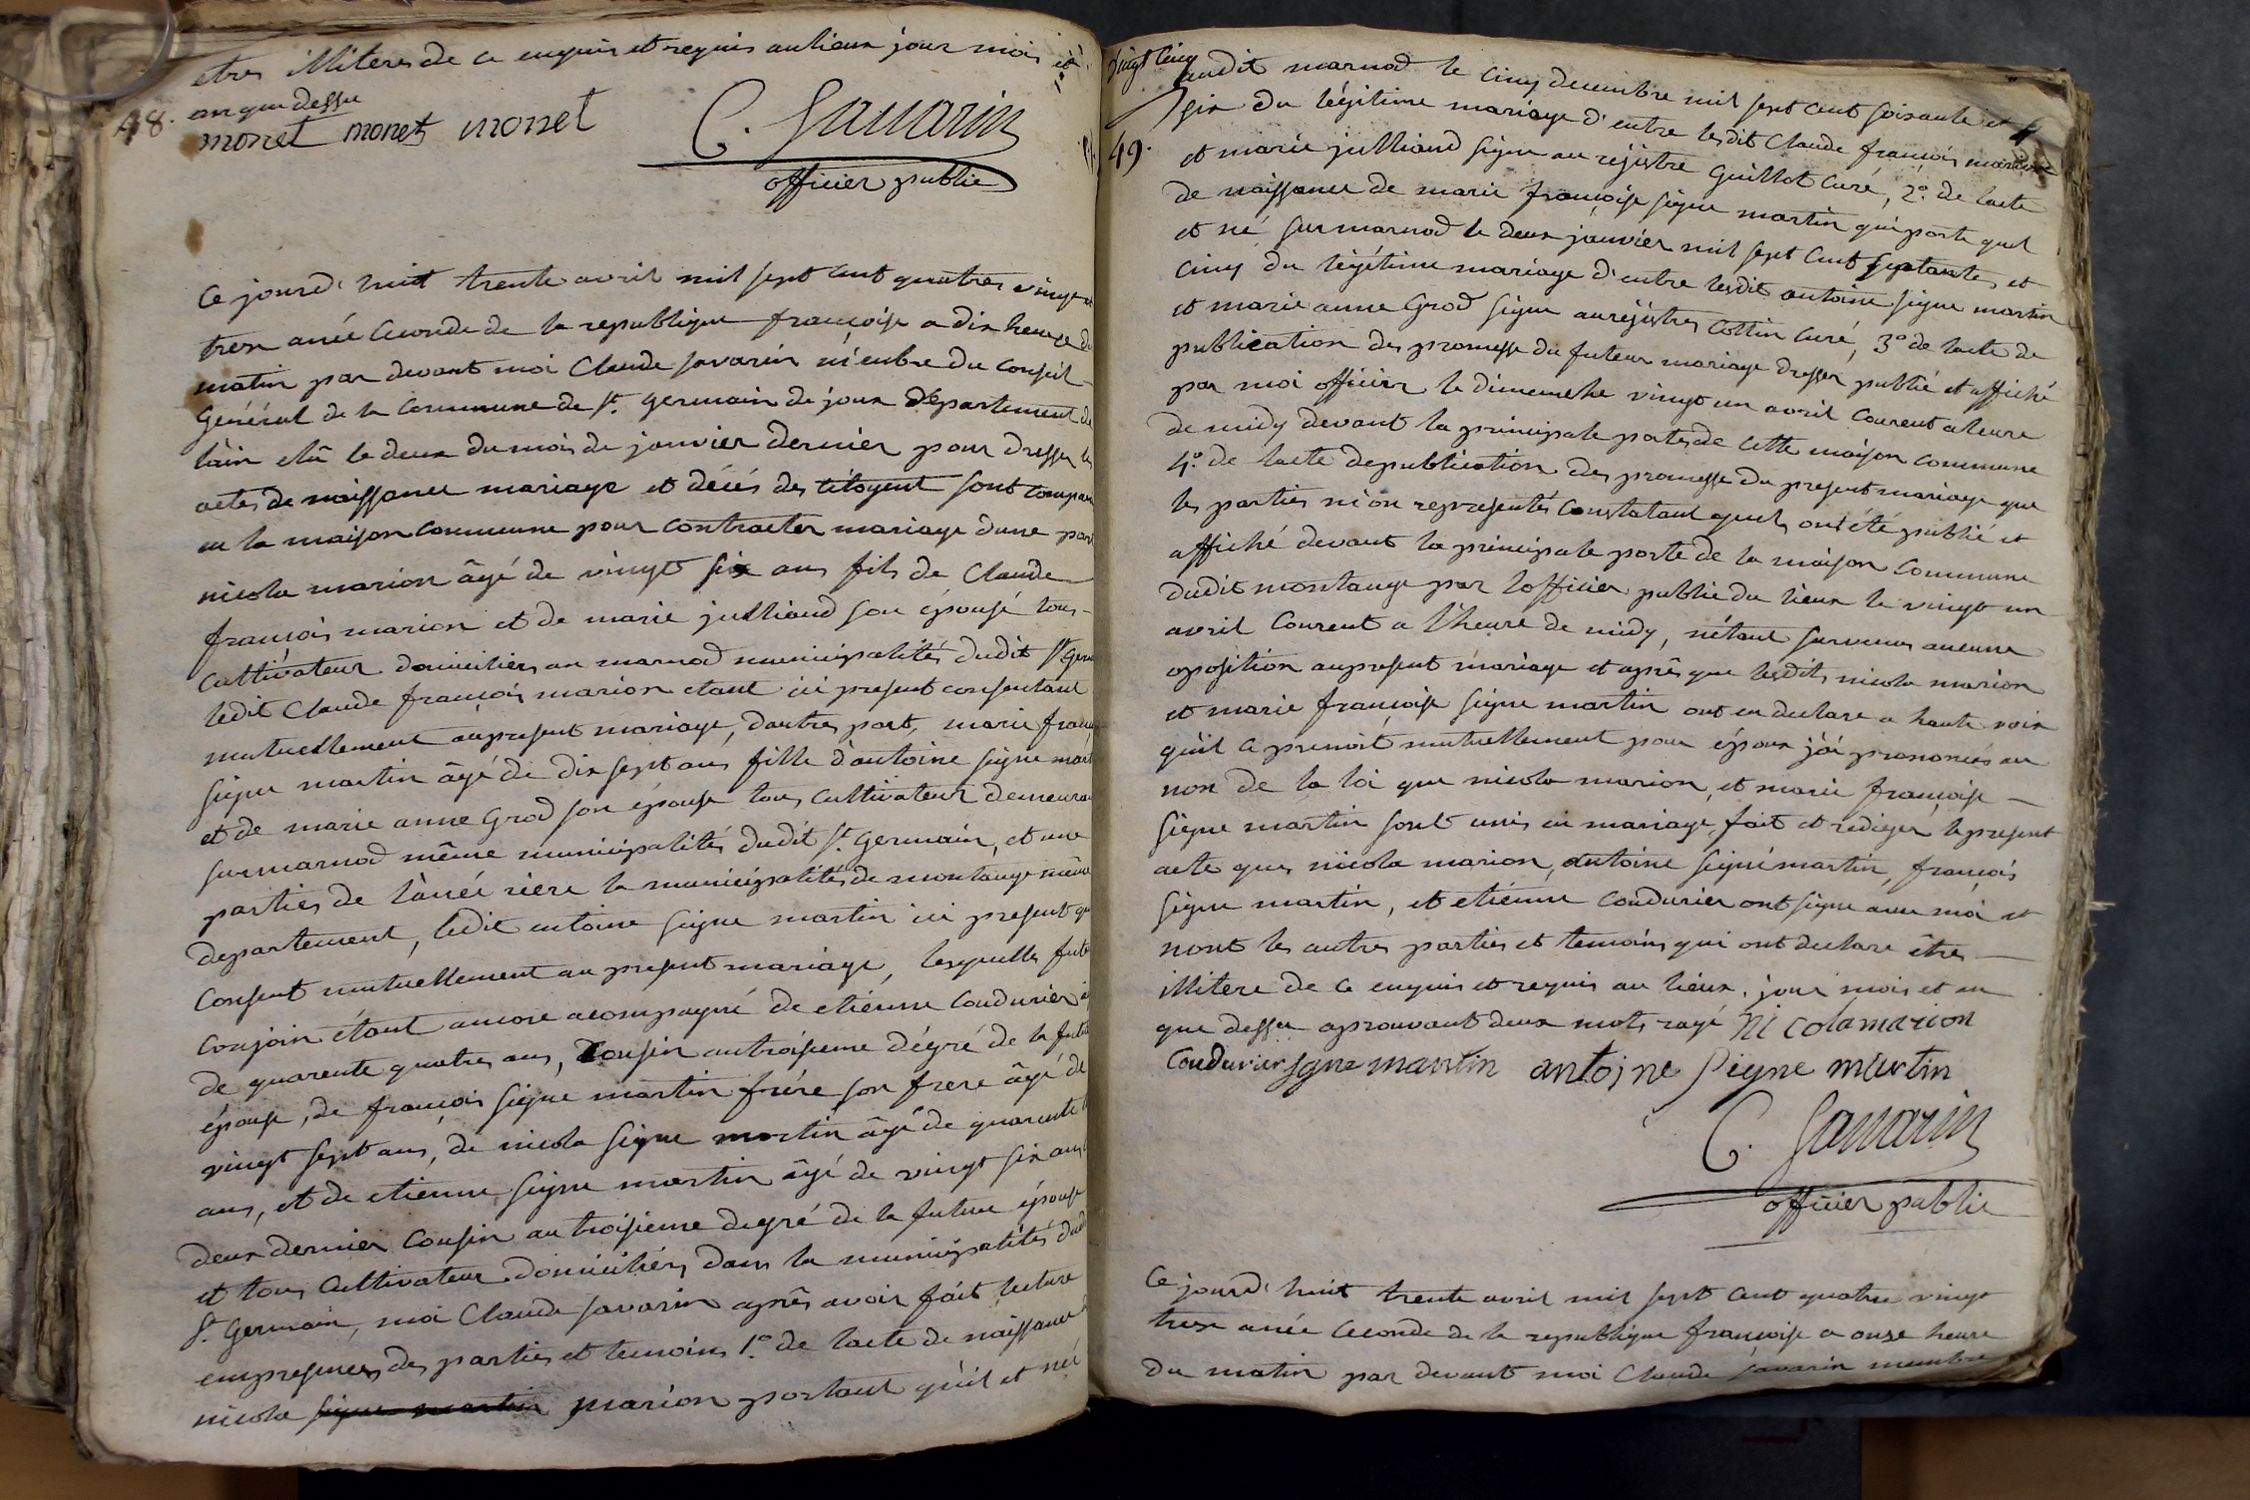 etres illiteres de ce enquis et requis au lieux jour mois et
48. an que dessu
monet monet monet C. Savarin
officier public
Ce jourd'huit trente avril mil sept cent quatres vingt
trese anée ceconde de la republique françoise a dix heure du
matin par devant moi Claude Savarin membre du conseil
Général de la Commune de st. germain de joux département de
lain elû le deux du mois de janvier dernier pour dresser les
actes de naissance mariage et décés des citoyent sont compar
en la maison commune pour contracter mariage dune part
nicola marion âgé de vingt six ans fils de Claude
françois marion et de marie julliand son épouse tous
cultivateur domiciliers au marnod municipalités dudit st. germ
ledit Claude françois marion etant ici present consentant
mutuellement au present mariage, dautres part, marie franç
signe martin âgé de dix sept ans fille d'antoine signe mart
et de marie anne Grod son épouse tous cultivateur demeura
sur marnod même municipalités dudit st. germain, et une
parties de lanée riere la municipalités de montange même
departement, ledit antoine signe martin ici present qui
consent mutuellement au present mariage, lesquells futu
conjoin étant ancore acompagné de etiénne coudurier â
de quarente quatres ans, cousin au troisieme dégré de la futu
épouse, de françois signe martin frére son frere âgé de
vingt sept ans, de nicola signe martin âgé de quarente
ans, et de etienne signe martin âgé de vingt six ans
deux dernier cousin au troisieme degré de la future épouse
et tous cultivateur domiciliers dans la municipalités dud
st. Germain, moi Claude Savarin aprês avoir fait lecture
empresences des parties et temoins 1.° de lacte de naissance
nicola signe martin marion portant qu'il et né
vingt cinq
audit marnod le cinq decembre mil sept cent soisante et
six du légitime mariage d'entre lesdit Claude françois marion
49. et marie julliand signe au rejistre Guillot curé, 2.° de lacte
de naissance de marie françoise signe martin qui porte quel
et né sur marnod le deux janvier mil sept cent septantes et
cinq du légétime mariage d'entre lesdit antoine signe martin
et marie anne Grod signe au rejistres Collin curé, 3° de lacte de
publication des promesse du futeur mariage dresser publié et affiché
par moi officier le dimenche vingt un avril courent a leure
de midy devant la principale portes de cette maison commune
4.° de lacte de publication des promesse du present mariage que
les parties m'on representés constatant quels ont été publié et
affiché devant la principale porte de la maison commune
dudit montange par lofficier public du lieux le vingt un
avril courent a l'heure de midy, n'étant survenus aucune
oposition au present mariage et aprês que lesdits nicola marion
et marie françoise signe martin ont eu declare a haute voix
qu'il ce prenoit mutuellement pour époux j'ai prononcés au
non de la loi que nicola marion, et marie françoise
signe martin sont unis en mariage, fait et rediger le present
acte ques nicola marion, antoine signe martin, françois
signe martin, et etiénne coudurier ont signe avec moi et
nont les autres parties et temoins qui ont declare êtres
illitere de ce enquis et requis au lieux, jour mois et an
que dessu aprouvant deux mots rayé nicola marion
Coudurier sgne martin antoine signe martin
C. Savarin
officier public
Ce jourd'huit trente avril mil sept cent quatre vingt
trese anée ceconde de la republique françoise a onse heure
du matin par devant moi Claude Savarin membre